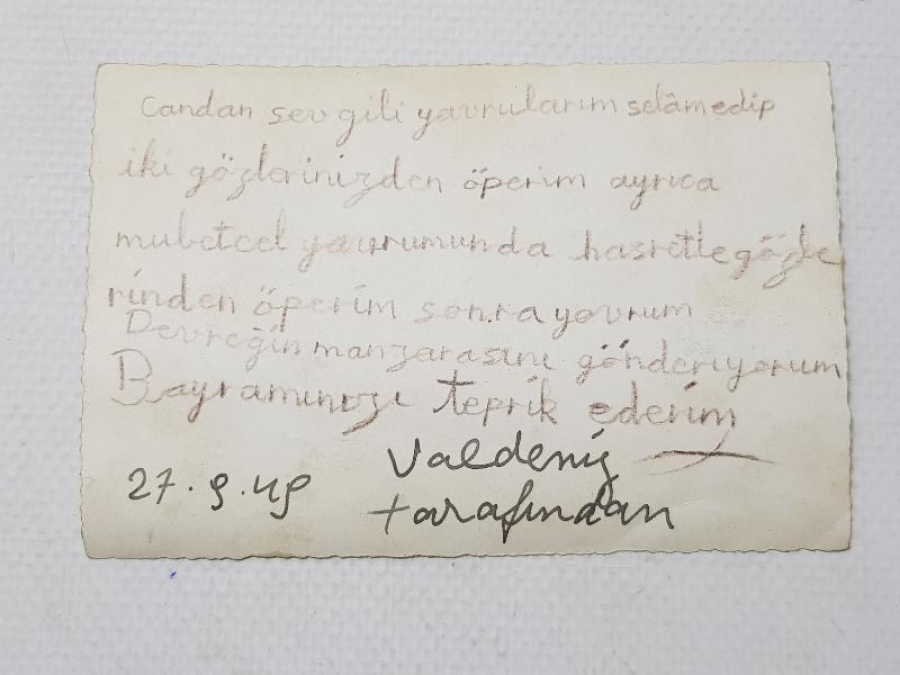 Candan sevgili yavrularım selâm edip
iki gözlerinizden öperim ayrıca
mubeteel yavrumunda hasretle gözle
rinden öperim sonra yavrum
Devreğin manzarasını gönderiyorum
Bayramınızı teprik ederim
Valdeniz
27.9.49 tarafından